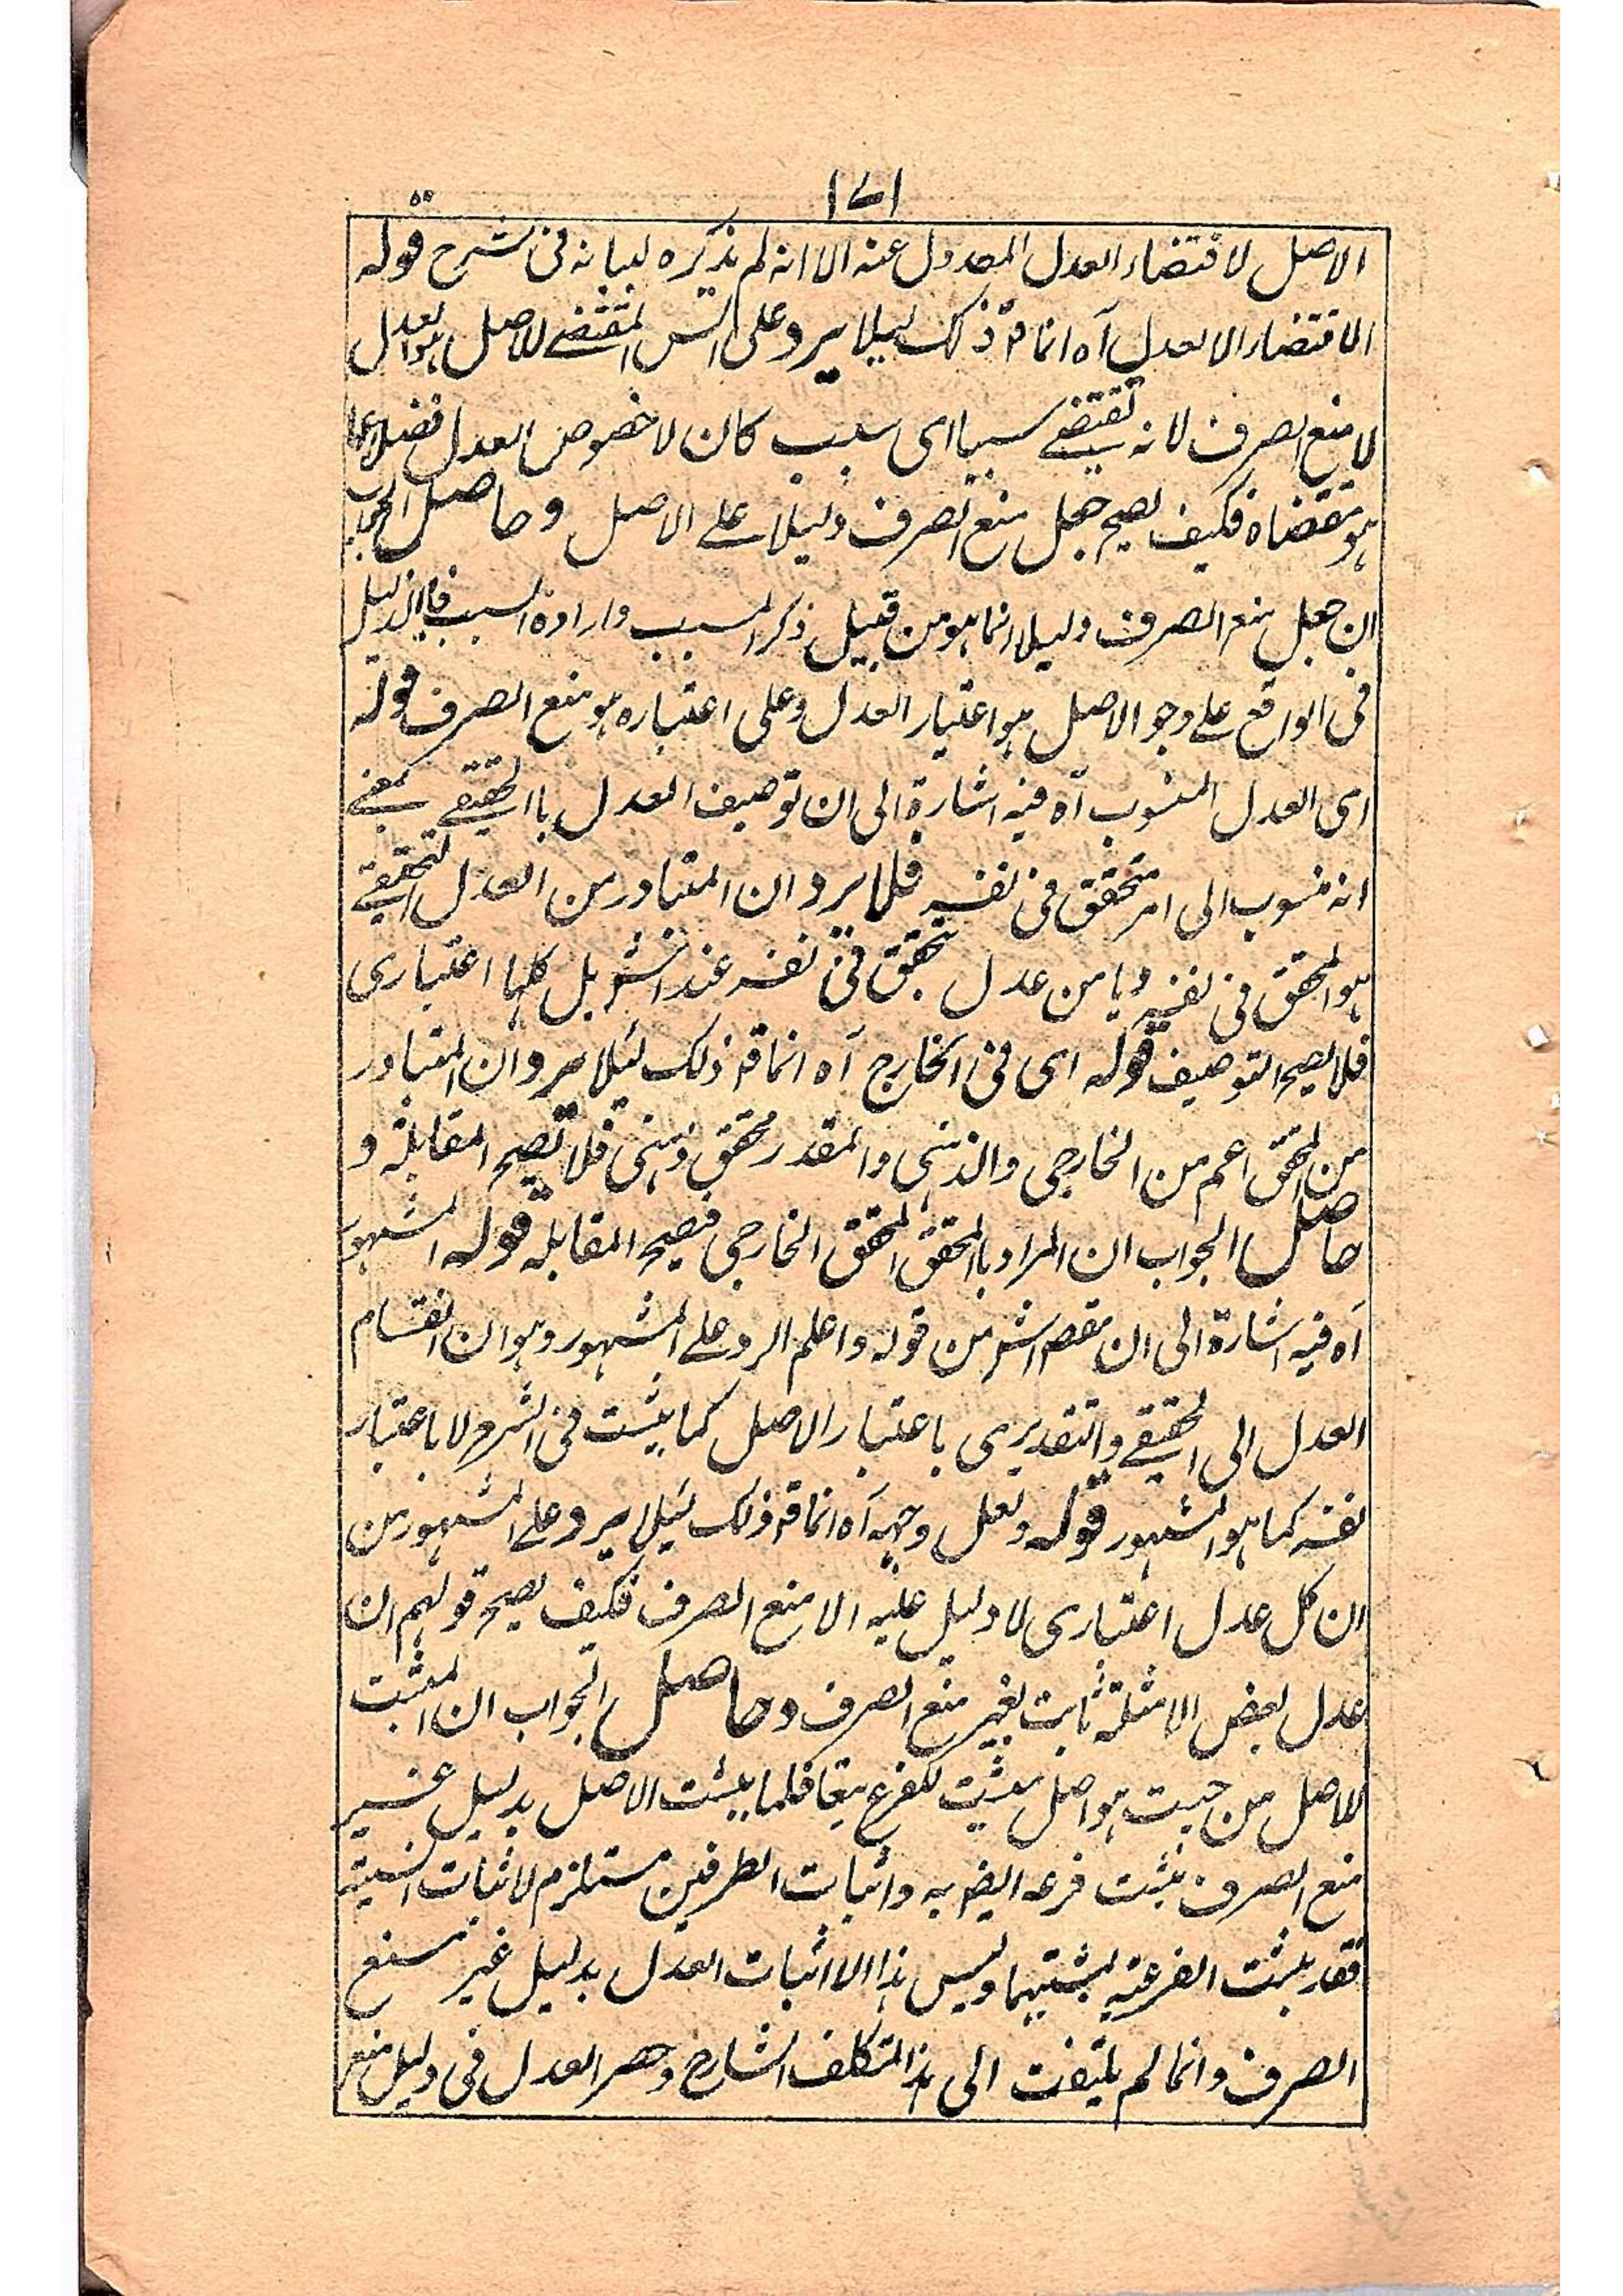 ١٧١
الاصل لاقتضاء العدل المعدول عنه الا انه لم يذكره لبيانه فى شرح قوله
الاقتضاء الا لعدل آه انما قد ذلك ليلا يرد على الش المقتضے للاصل هو العدل
لا منع الصرف لانه يقتضے سببا اى سبب كان لا خصوص العدل فضلا عما
هو مقتضاه فكيف يصح جعل منع الصرف دليلا علے الاصل وحاصل الجواب
ان جعل منع الصرف دليلا انما هو من قبيل ذكر المسبب وارادة السبب فان الدليل
فى الواقع علے وجو الاصل هو اعتبار العدل وعلى اعتباره هو منع الصرف قوله
اى العدل المنسوب آه فيه اشارة الى ان توصيف العدل باالحقيقے بمعنے
انه منسوب الى امر متحقق فى نفسه فلا يرد ان المتبادر من العدل التحقيقے
هو المتحقق فى نفسه وما من عدل يتحقق فى نفسه عند الش بل كلها اعتبارى
فلا يصح التوصيف قوله اى فى الخارج آه انما قد ذلك لئلا يرد ان المتبادر
من المتحقق اعم من الخارجى والذهنى والمقدر متحقق ذهنى فلا تصح المقابلة و
حاصل الجواب ان المراد باالمتحقق المتحقق الخارجى فيصح المقابلة قوله المشهور
آه فيه اشارة الى ان مقصد الش من قوله واعلم الرد علے المشهور وهو ان انقسام
العدل الى الحقيقے والتقديرى باعتبار الاصل كما يثبت فى الشرح لا باعتبار
نفسه كما هو المشهور قوله ولعل وجهه آه انما قد ذلك لئيلا يرد علے المشهور من
ان كل عدل اعتبارى لا دليل عليه الا منع الصرف فكيف يصح قولهم ان
عدل بعض الامثلة ثابت بغير منع الصرف وحاصل الجواب ان المثبت
للاصل من حيث هو اصل مثبت للفرع تبعا فلما يثبت الاصل بدليل غير
منع الصرف يثبت فرعه ايضا به واثبات الطرفين مستلزم لاثبات النسبة
فقد يثبت الفرعية بمثبتهما وليس هذا الا اثبات العدل بدليل غير منع
الصرف وانما لم يلتفت الى هذا التكلف الشارح وحصر العدل فى دليل منع